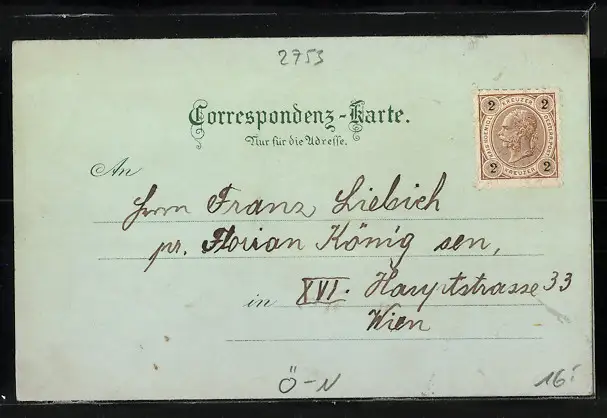 2753
Correspondenz-Karte.
Nur für die Adresse.
2 KREUZER 2
2 KREUZER 2
An
Herrn Franz Liebich
pr. Florian König sen,
in XVI. Hauptstrasse 33
Wien
Ö-N
16.-